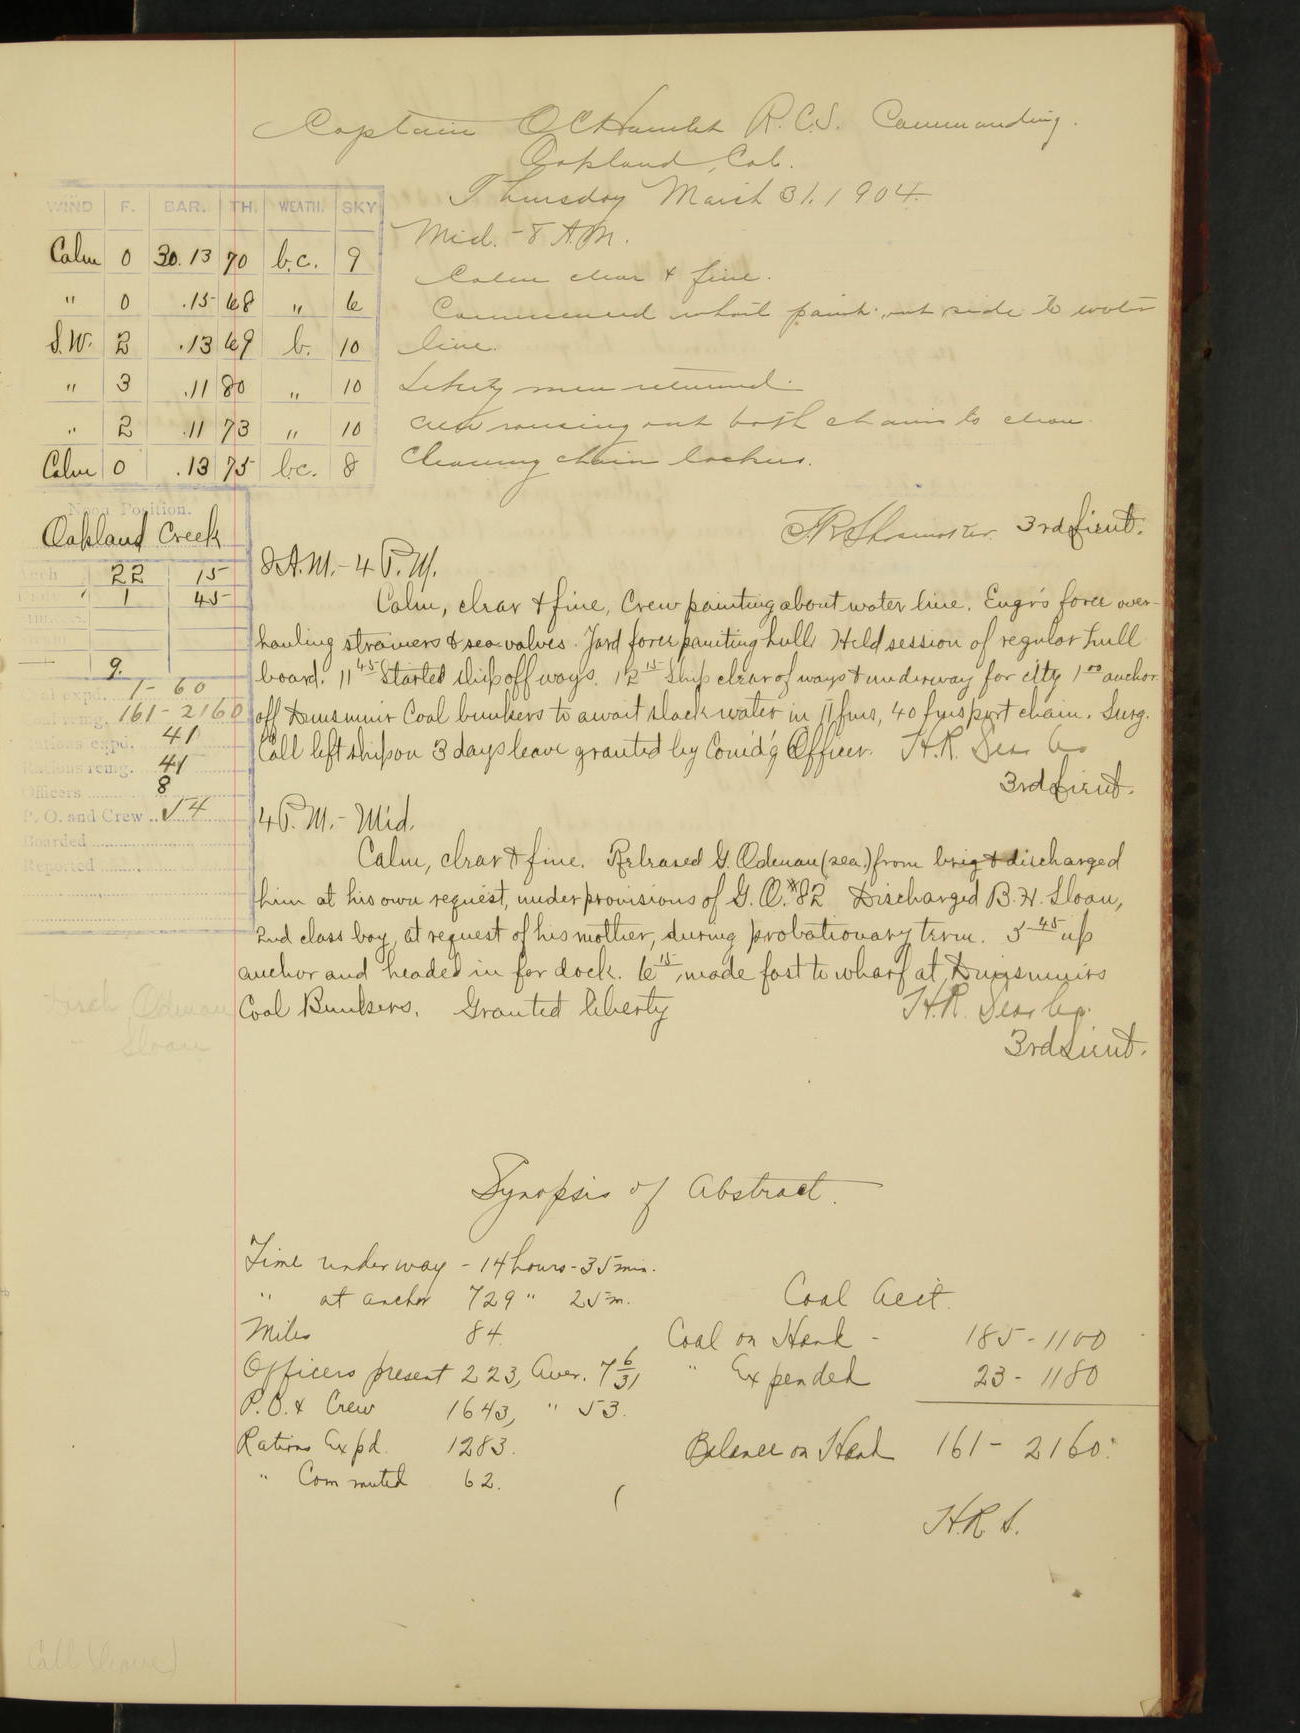 Captain O C Hamlet R.C.S. Commanding.
Oakland, Cal.
Thursday March 31, 1904.
WIND F. BAR. TH. WEATH. SKY
Calm 0 30.13 70 b.c. 9
" 0 .15 68 " 6
S.W. 2 .13 69 b. 10
" 3 .11 80 " 10
" 2 .11 73 " 10
Calm 0 .13 75 bc. 8
Mid. - 8 A.M.
Calm clear & fine.
Commenced white paint out side to water
line.
Liberty men returned.
Crew rousing out both chains to clean.
Cleaning chain lockers.
3rd Lieut.
Noon Position.
Oakland Creek
22 15
1 45
9.
1 - 60
161 - 2160
Rations expd. 41
Rations remg. 41
Officers 8
P. O. and Crew 54
Boarded
Reported
8 A.M. - 4 P.M.
Calm, clear & fine, Crew painting about water line. Engr's force over-
hauling strainers & sea valves. Yard force painting hull. Held session of regular hull
board. 11 45 Started ship off ways. 12 15 Ship clear of ways & underway for city 1 00 anchor
off Dunsmuir Coal bunkers to await slack water in 11 fms, 40 fms port chain. Surg.
Call left ship on 3 days leave granted by Comd'g Officer. H.R. Searles
3rd Lieut.
4 P.M. - Mid.
Calm, clear & fine. Released G. Odman (sea.) from brig & discharged
him at his own request, under provisions of G.O. #82 Discharged B.H. Sloan,
2nd class boy, at request of his mother, during probationary term. 5 45 up
anchor and headed in for dock. 6 15, made fast to wharf at Dunsmuirs
Coal Bunkers. Granted liberty
H.R. Searles.
3rd Lieut.
Disch Odman
" Sloan
Synopsis of Abstract.
Time under way - 14 hours - 35 min.
" at anchor 729 " 25 m.
Miles 84.
Officers present 223, Aver. 7 6/31
P.O. & Crew 1643, " 53.
Rations Expd. 1283.
" Commuted 62.
Coal Acct.
Coal on Hand - 185 - 1100
" Expended 23 - 1180
Balance on Hand 161 - 2160.
H.R.S.
Call (leave)